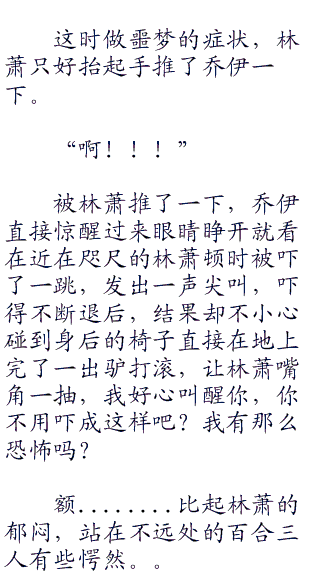 这时做噩梦的症状，林
萧只好抬起手推了乔伊一
下。
“啊！！！”
被林萧推了一下，乔伊
直接惊醒过来眼睛睁开就看
在近在咫尺的林萧顿时被吓
了一跳，发出一声尖叫，吓
得不断退后，结果却不小心
碰到身后的椅子直接在地上
完了一出驴打滚，让林萧嘴
角一抽，我好心叫醒你，你
不用吓成这样吧？我有那么
恐怖吗？
额........比起林萧的
郁闷，站在不远处的百合三
人有些愕然。。